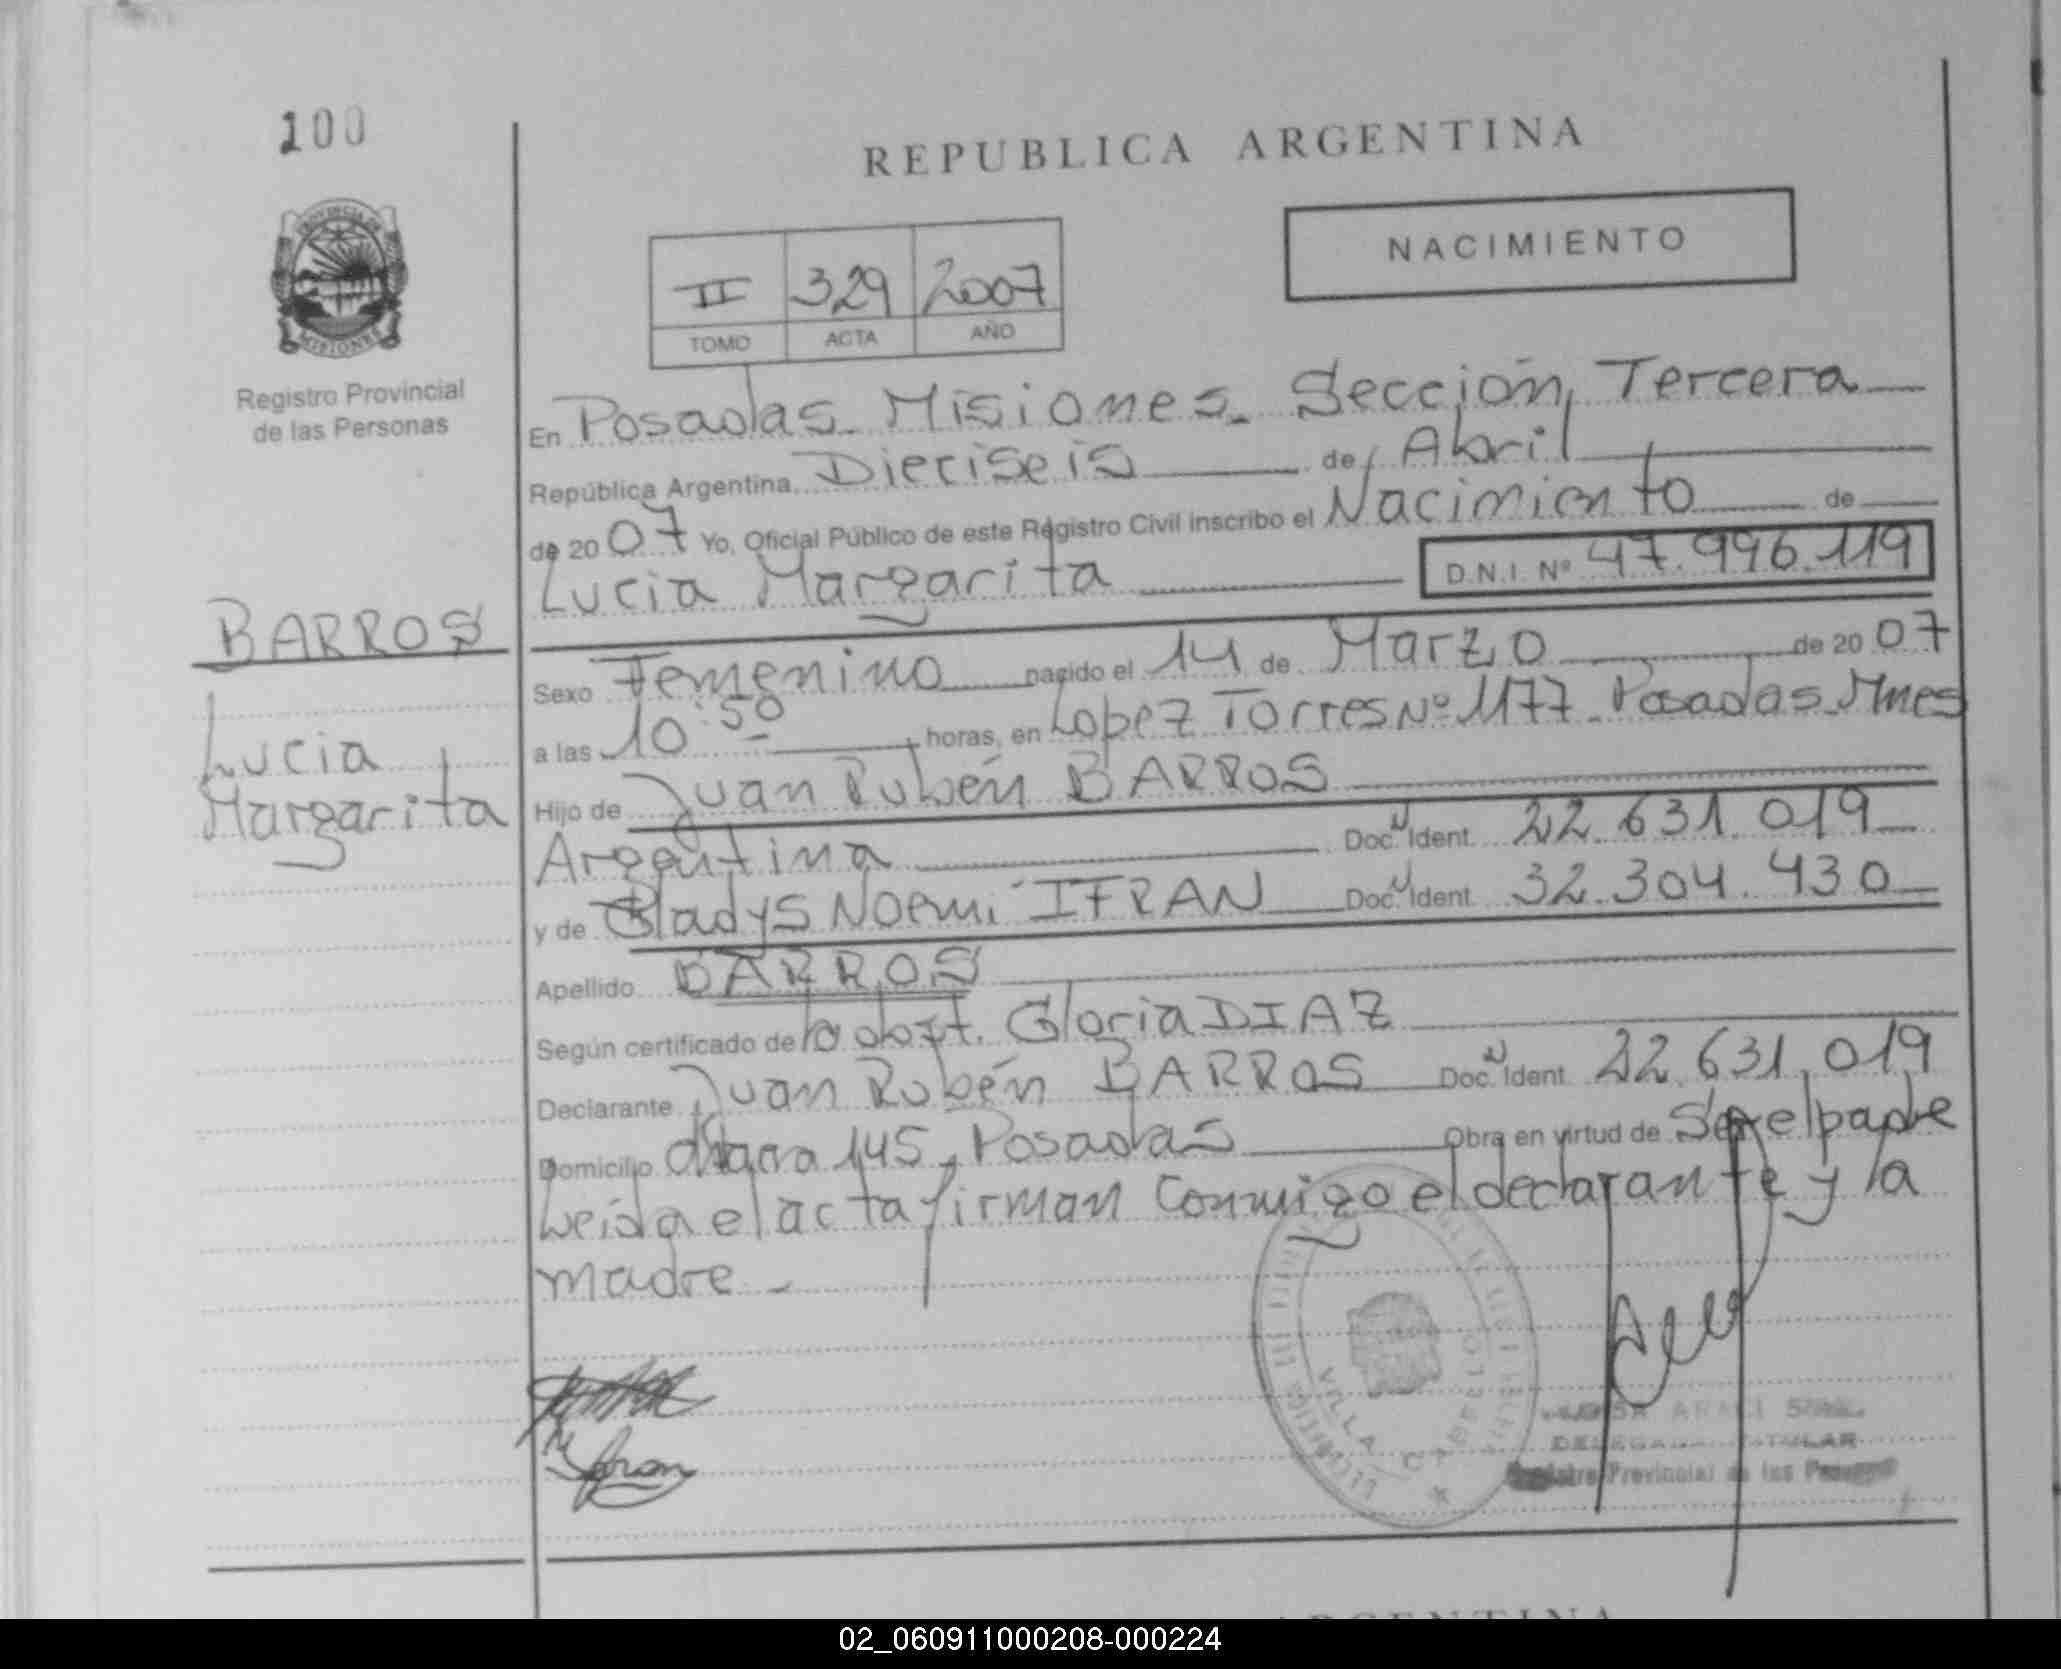 100
REPUBLICA ARGENTINA
PROVINCIA DE
MISIONES
Registro Provincial
de las Personas
II 329 2007
TOMO ACTA AÑO
NACIMIENTO
En Posadas. Misiones. Sección Tercera
República Argentina, Dieciseis de Abril
de 2007 Yo, Oficial Público de este Registro Civil inscribo el Nacimiento de
Lucia Margarita D.N.I. Nº 47.996.119
BARROS
Lucia
Margarita
Sexo Femenino nacido el 14 de Marzo de 2007
a las 10:50 horas, en Lopez Torres Nº 1177. Posadas. Mnes
Hijo de Juan Rubén BARROS
Argentina Doc. Ident. 22.631.019
y de Gladys Noemi IFRAN Doc. Ident. 32.304.430
Apellido BARROS
Según certificado de la obst. Gloria DIAZ
Declarante Juan Rubén BARROS Doc. Ident. 22.631.019
Domicilio chacra 145, Posadas Obra en virtud de Ser el padre
Leida el acta firman conmigo el declarante y la
madre.
Ifran
VILLA CABELLO
TITULAR
Registro Provincial de las
ARGENTINA
02_060911000208-000224